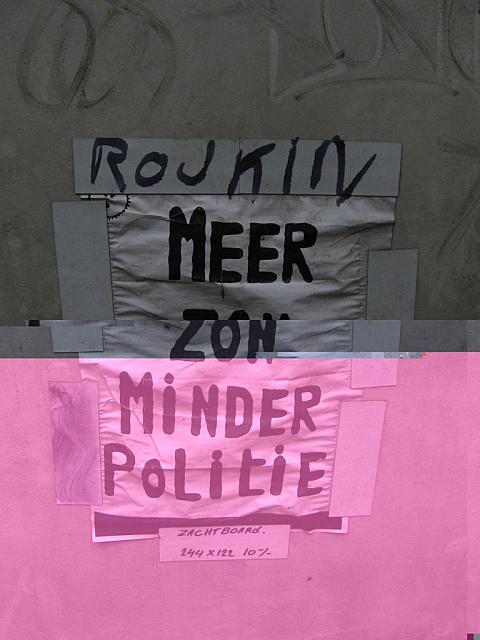 ROJKIN
MEER
ZON
MiNDER
POLitiE
ZACHTBOARD.
244 X 122 10%